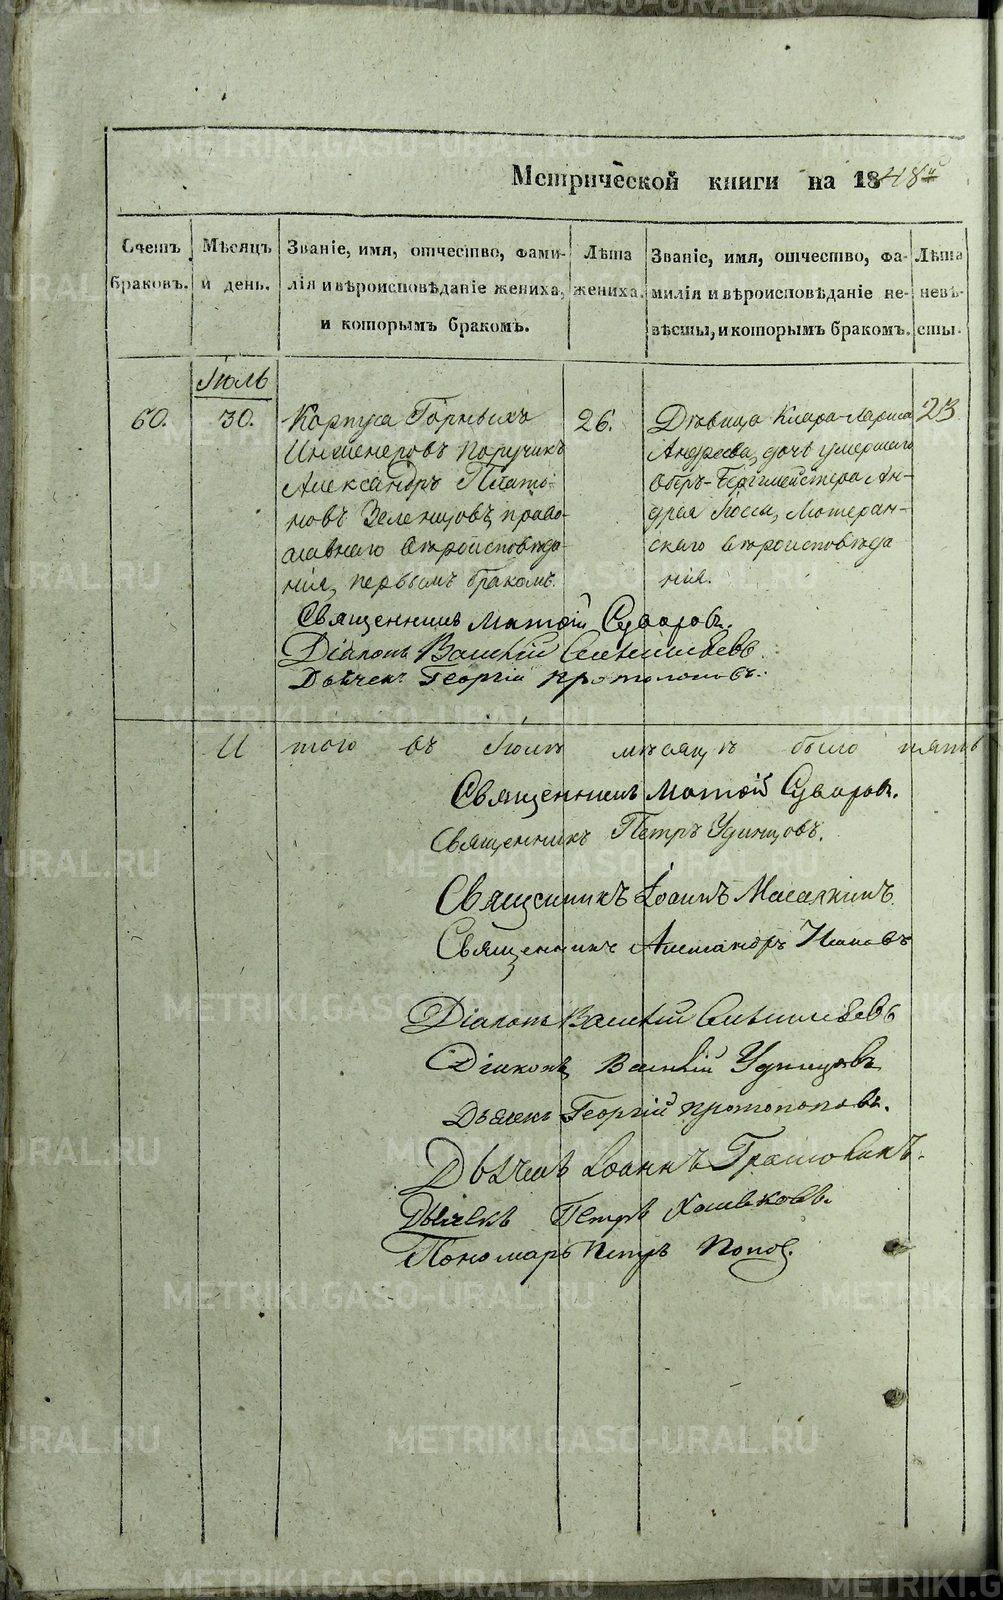 Метрической книги на 1848й
Счетъ браковъ.
Мѣсяцъ и день.
Званіе, имя, отчество, фами-
лія и вѣроисповѣданіе жениха,
и которымъ бракомъ.
Лѣта жениха.
Званіе, имя, отчество, фа-
милія и вѣроисповѣданіе не-
вѣсты, и которымъ бракомъ.
Лѣта невѣ-
сты.
Іюль
60.
30.
Корпуса Горныхъ
Инженеровъ Поручикъ
Александръ Плато-
новъ Зеленцовъ, право-
славнаго вѣроисповѣда-
нія, первымъ бракомъ.
26.
Дѣвица Клара-Лариса
Андреева, дочь умершаго
Оберъ-Бергмейстера Ан-
дрея Іосса, Лютеран-
скаго вѣроисповѣда
нія.
23
Священникъ Матѳій Суворовъ.
Діаконъ Василій
Дьячекъ Георгій Протопоповъ.
Итого въ Іюлѣ мѣсяцѣ было пять
Священникъ Матѳій Суворовъ.
Священникъ Петръ Удинцовъ.
Священникъ Іоаннъ
Священникъ Александръ Поповъ
Діаконъ Василій
Діаконъ Василій Удинцовъ
Дьячекъ Георгій Протопоповъ.
Дьячекъ Іоаннъ
Дьячекъ Петръ
Пономарь Петръ Поповъ.
METRIKI.GASO-URAL.RU